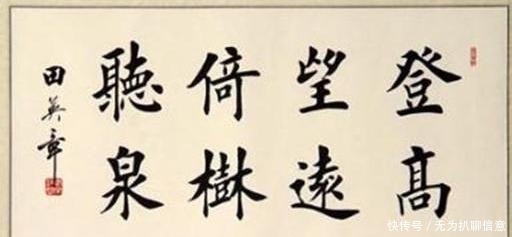 登高
望遠
倚樹
聽泉
田英章
快传号/无为扒聊信意